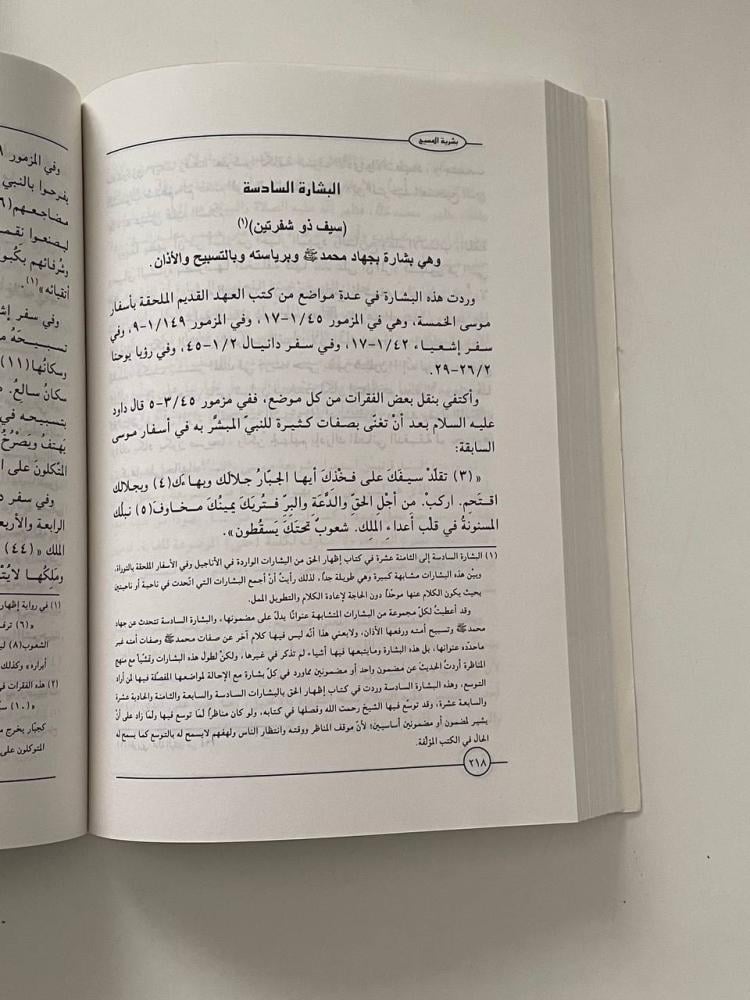 بشرية المسيح
البشارة السادسة
(سيف ذو شفرتين)(١)
وهي بشارة بجهاد محمد ﷺ وبرياسته وبالتسبيح والأذان.
وردت هذه البشارة في عدة مواضع من كتب العهد القديم الملحقة بأسفار
موسى الخمسة، وهي في المزمور ١/٤٥-١٧، وفي المزمور ١/١٤٩-٩، وفي
سفر إشعياء ١/٤٢-١٧، وفي سفر دانيال ١/٢-٤٥، وفي رؤيا يوحنا
٢٦/٢-٢٩.
وأكتفي بنقل بعض الفقرات من كل موضع، ففي مزمور ٣/٤٥-٥ قال داود
عليه السلام بعد أنْ تغنّى بصفات كثيرة للنبيّ المبشَّر به في أسفار موسى
السابقة:
«(٣) تقلّدْ سيفَكَ على فخْذكَ أيها الجبّارُ جلالَكَ وبهاءَك(٤) وبجلالك
اقتَحِم. اركبْ. من أجْلِ الحَقِّ والدَّعَة والبِرِّ فتُريَكَ يمينُكَ مخاوفَ(٥) نبلُكَ
المسنونةُ في قلْب أعداءِ الملِك. شعوبٌ تحتَكَ يَسقُطون».
(١) البشارة السادسة إلى الثامنة عشرة في كتاب إظهار الحق من البشارات الواردة في الأناجيل وفي الأسفار الملحقة بالتوراة،
وبيْن هذه البشارات مشابهة كبيرة وهي طويلة جداً، لذلك رأيتُ أنْ أجمع البشارات التي اتّحدت في ناحية أو ناحيتين
بحيث يكون الكلام عنها موحَّداً دون الحاجة لإعادة الكلام والتطويل الممل.
وقد أعطيتُ لكلّ مجموعة من البشارات المتشابهة عنواناً يدلّ على مضمونها، والبشارة السادسة تتحدث عن جهاد
محمد ﷺ وتسبيح أمته ورفعها الأذان، ولايعني هذا أنّه ليس فيها كلام آخر عن صفات محمد ﷺ وصفات أمته غير
ماحدّده عنوانها، بل هذه البشارة ومايتبعها فيها أشياء لم تذكر في غيرها، ولكنْ لطول هذه البشارات وتمشّياً مع منهج
المناظرة أردتُ الحديثَ عن مضمون واحد أو مضمونين مماورد في كلّ بشارة مع الإحالة لمواضعها المفصَّلة فيها لمن أراد
التوسع، وهذه البشارة السادسة وردت في كتاب إظهار الحق بالبشارات السادسة والسابعة والثامنة والحادية عشرة
والسابعة عشرة، وقد توسّع فيها الشيخ رحمت الله وفصلها في كتابه، ولو كان مناظراً لما توسع فيها ولما زاد على أنْ
يشير لمضمون أو مضمونين أساسيين؛ لأنّ موقف المناظر ووقته وانتظار الناس ولهفهم لايسمح له بالتوسع كما يسمح له
الحال في الكتب المؤلّفة.
٢١٨
وفي المزمور
يفرحوا بالنبي
مضاجعهم
ليصنعوا نقمـ
وشُرفائهم بكُبو
أتقيائه»(١).
وفي سفر إشـ
تسبيحَهُ
وسكانُها(١١)
سكانُ سالعُ.
بتسبيحه في
يَهتفُ ويَصْرُخُ
المتّكلونَ على
وفي سفر
الرابعة والأربعـ
الملك «(٤٤)
وملكُها لايُتْـ
(١) في رواية إظهار
«(٦) ترفـ
الشعوب(٨)
أبراره» وكذلك
(٢) هذه الفقرات في
«(١٠)
كجبار يخرج
المتوكلون على